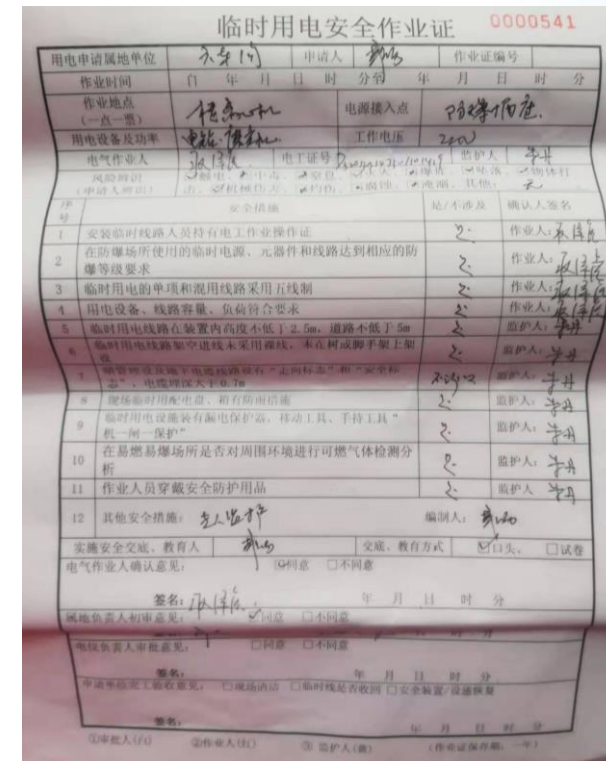 临时用电安全作业证 0000541
用电申请属地单位 申请人 作业证编号
作业时间 自 年 月 日 时 分至 年 月 日 时 分
作业地点（一点一票） 电源接入点 防爆插座
用电设备及功率 工作电压 220V
电气作业人 电工证号 监护人 李丹
风险辨识（申请人辨识） 触电、 中毒、 窒息、 火灾、 爆炸、 坠落、 物体打击、 机械伤害、 灼伤、 腐蚀、 淹溺、其他： 无
序号 安全措施 是/不涉及 确认人签名
1 安装临时线路人员持有电工作业操作证 是 作业人：
2 在防爆场所使用的临时电源、元器件和线路达到相应的防爆等级要求 是 作业人：
3 临时用电的单项和混用线路采用五线制 是 作业人：
4 用电设备、线路容量、负荷符合要求 是 作业人：
5 临时用电线路在装置内高度不低于2.5m，道路不低于5m 是 监护人：李丹
6 临时用电线路架空进线未采用裸线，未在树或脚手架上架设 是 监护人：李丹
7 暗管埋设及地下电缆线路设有“走向标志”和“安全标志”，电缆埋深大于0.7m 不涉及 监护人：李丹
8 现场临时用配电盘、箱有防雨措施 是 监护人：李丹
9 临时用电设施装有漏电保护器，移动工具、手持工具“一机一闸一保护” 是 监护人：李丹
10 在易燃易爆场所是否对周围环境进行可燃气体检测分析 是 监护人：李丹
11 作业人员穿戴安全防护用品 是 监护人 李丹
12 其他安全措施：专人监护 编制人：
实施安全交底、教育人 交底、教育方式 ☑口头、 □试卷
电气作业人确认意见： ☑同意 □不同意
签名： 年 月 日 时 分
属地负责人初审意见： ☑同意 □不同意
年 月 日 时 分
电仪负责人审批意见： □同意 □不同意
签名： 年 月 日 时 分
申请单位完工验收意见： □现场清洁 □临时线是否收回 □安全装置/设施恢复
签名： 年 月 日 时 分
①审批人(白) ②作业人(红) ③ 监护人(黄) （作业证保存期：一年）